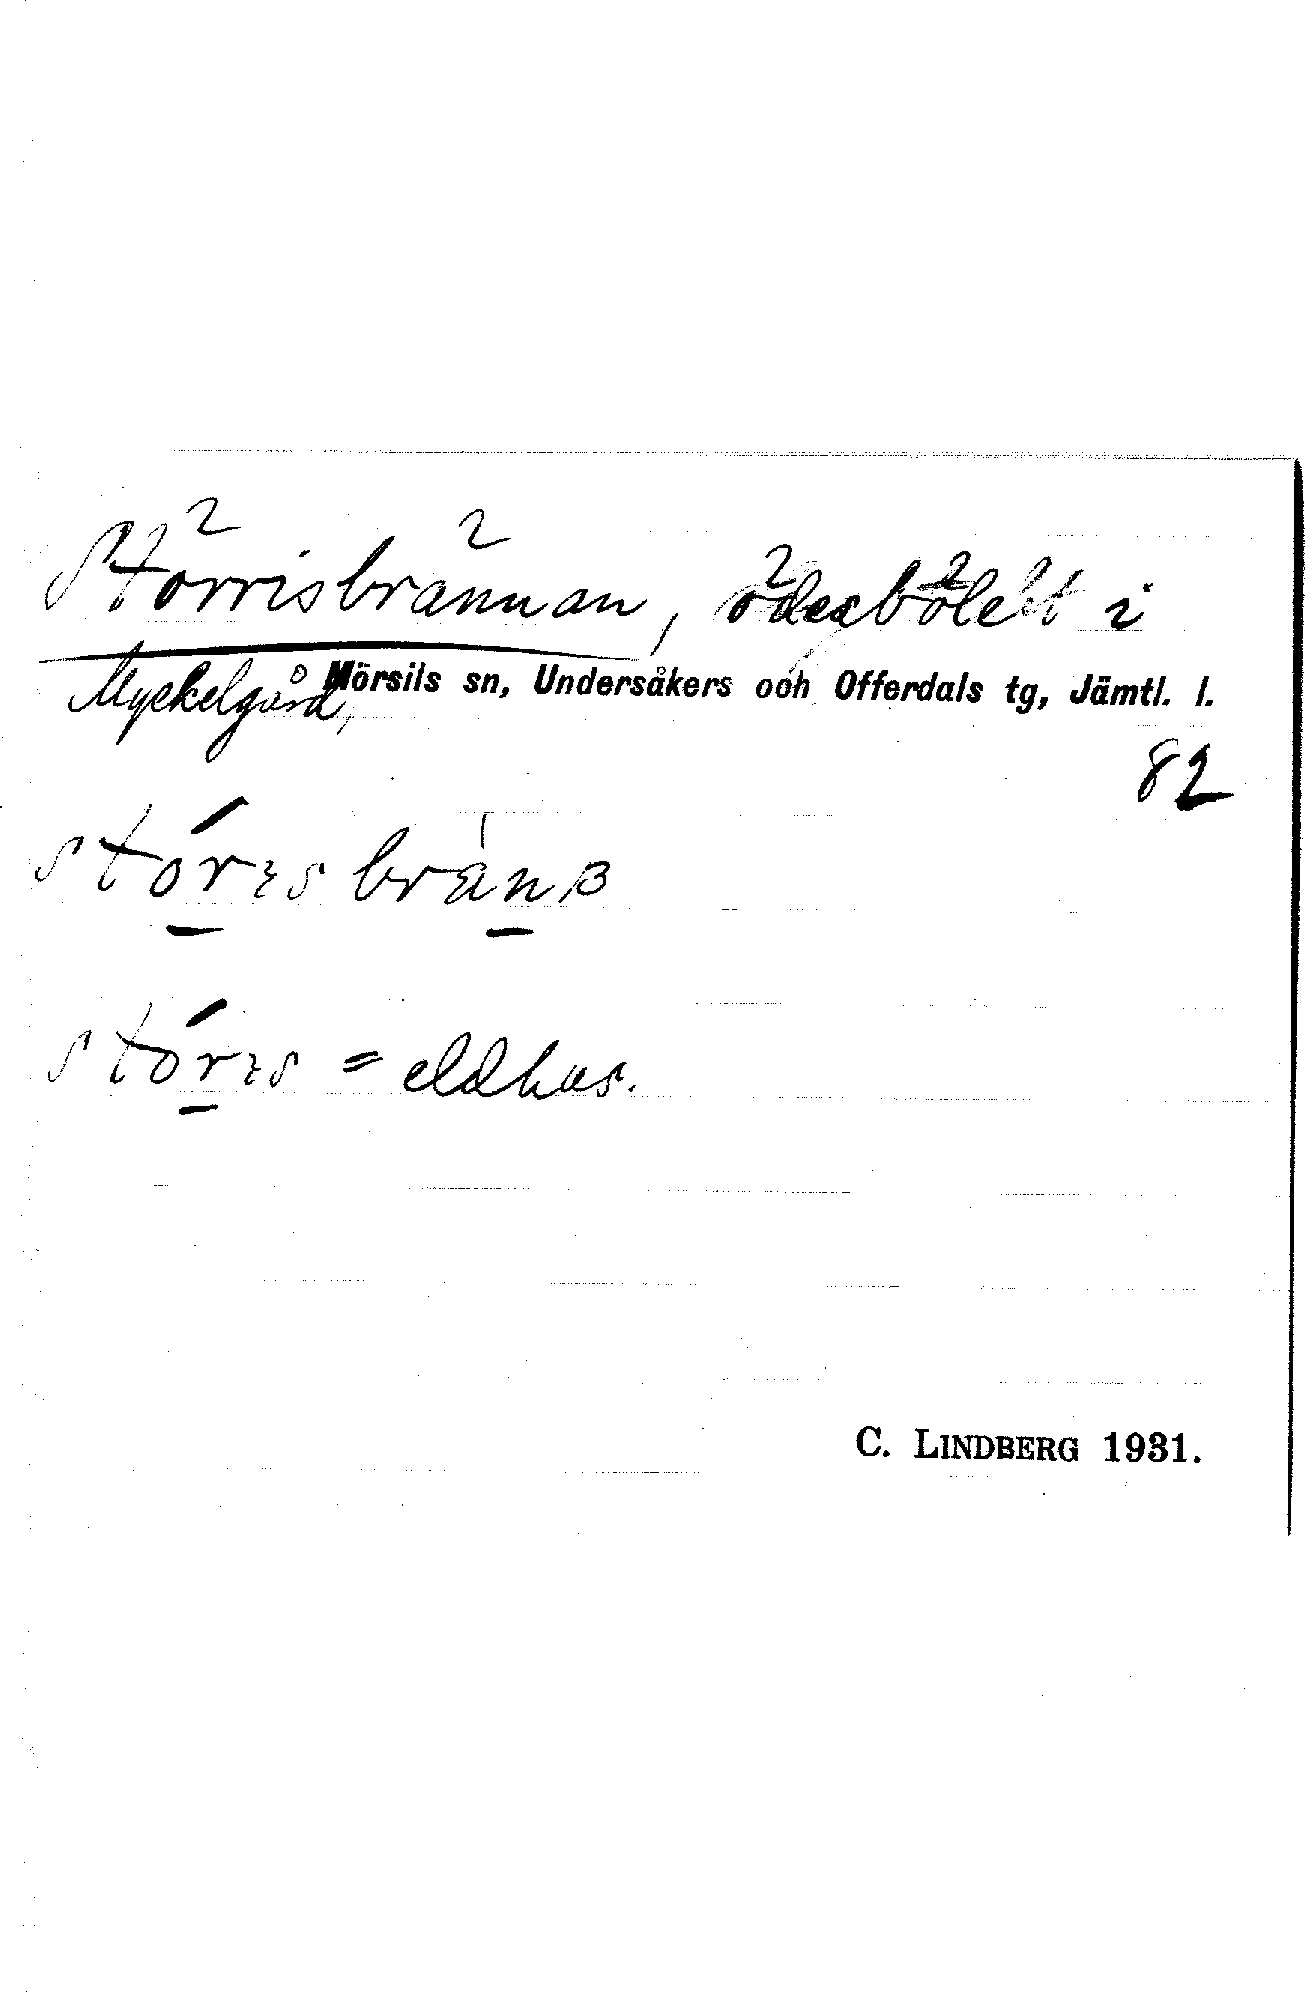 Störrisbrännan, ödesbölet i
Myckelgård, Mörsils sn, Undersåkers och Offerdals tg, Jämtl. l.
82
= eldhus.
C. LINDBERG 1931.